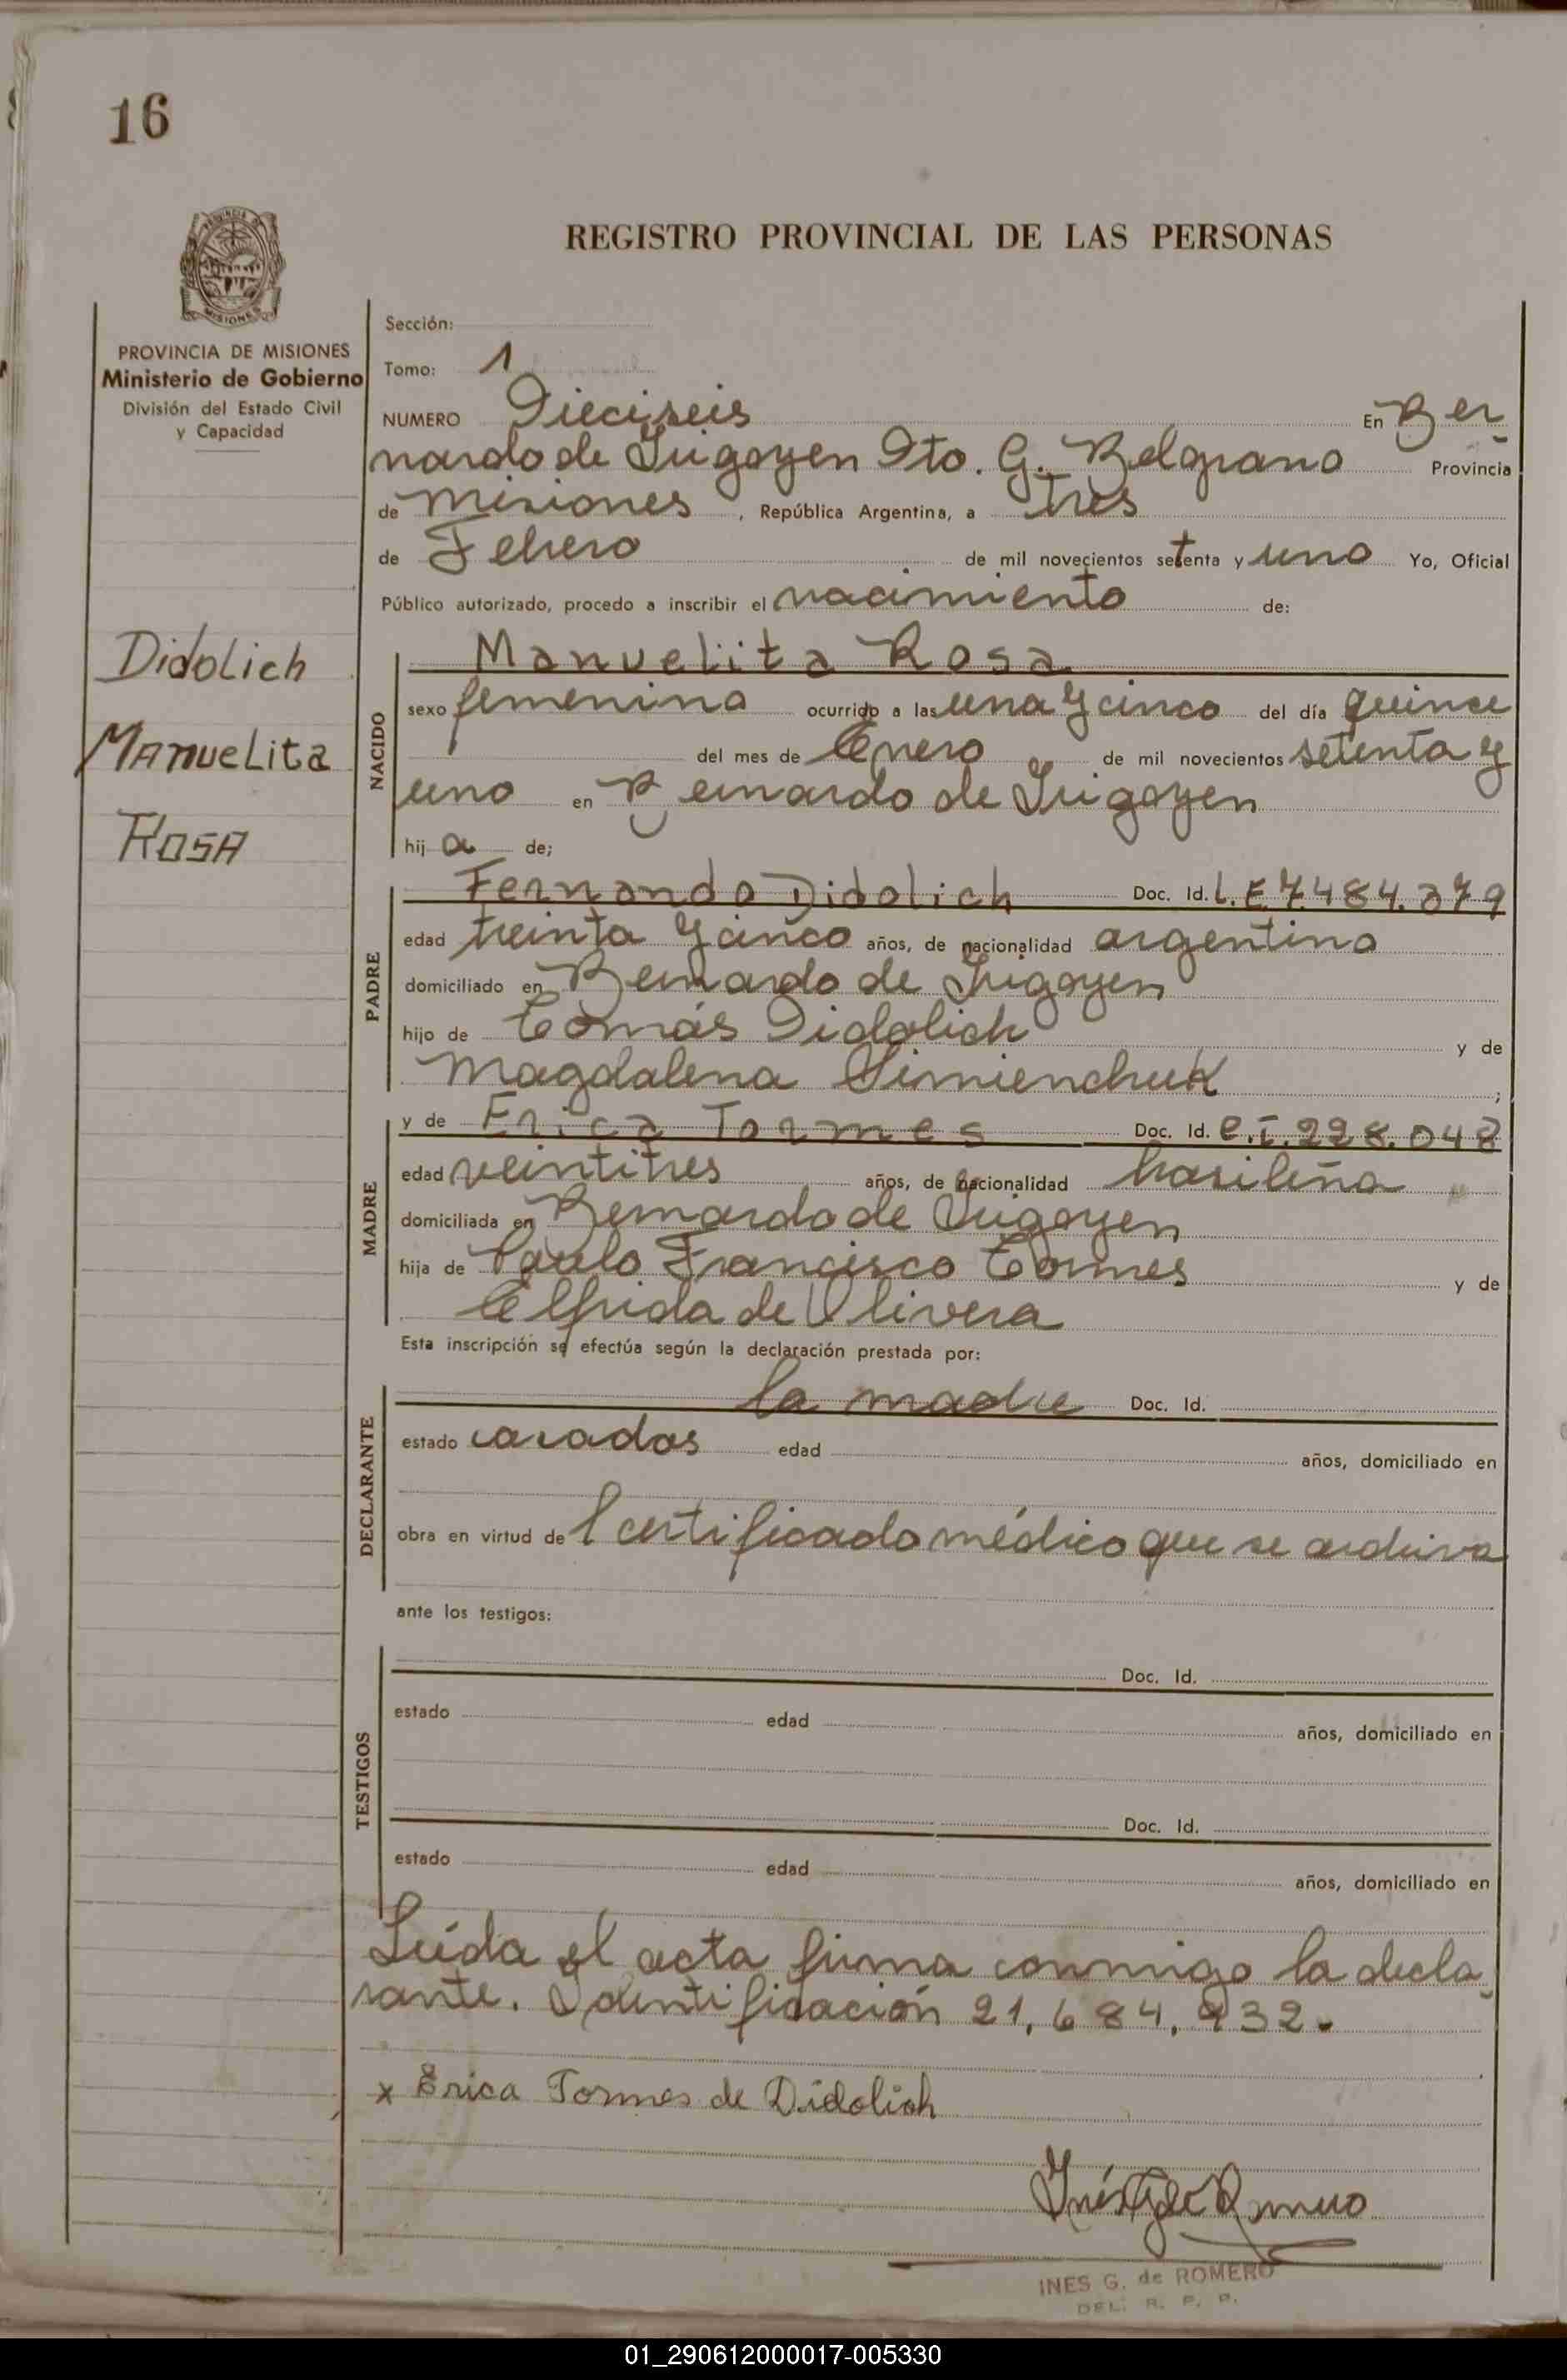 16
PROVINCIA DE MISIONES
MISIONES
REGISTRO PROVINCIAL DE LAS PERSONAS
PROVINCIA DE MISIONES
Ministerio de Gobierno
División del Estado Civil
y Capacidad
Didolich
Manuelita
Rosa
Sección:
Tomo: 1
NUMERO Dieciseis En Ber-
nardo de Irigoyen Dto. G. Belgrano Provincia
de Misiones, República Argentina, a tres
de Febrero de mil novecientos setenta y uno Yo, Oficial
Público autorizado, procedo a inscribir el nacimiento de:
NACIDO
Manuelita Rosa
sexo femenino ocurrido a las una y cinco del día quince
del mes de Enero de mil novecientos setenta y
uno en Bernardo de Irigoyen
hij a de;
PADRE
Fernando Didolich Doc. Id. L.E 7.484.379
edad treinta y cinco años, de nacionalidad argentino
domiciliado en Bernardo de Irigoyen
hijo de Tomás Didolich y de
Magdalena Simienchuk ;
MADRE
y de Erica Tormes Doc. Id. C.I. 228.048
edad veintitres años, de nacionalidad brasileña
domiciliada en Bernardo de Irigoyen
hija de Paulo Francisco Tormes y de
Elfrida de Olivera
Esta inscripción se efectúa según la declaración prestada por:
DECLARANTE
la madre Doc. Id.
estado casados edad años, domiciliado en
obra en virtud de l certificado médico que se archiva
ante los testigos:
TESTIGOS
Doc. Id.
estado edad años, domiciliado en
Doc. Id.
estado edad años, domiciliado en
Leída el acta firma conmigo la decla-
rante. Identificación 21.684.932.
x Erica Tormes de Didolich
Inés G de Romero
INES G. de ROMERO
DEL. R. P. P.
01_290612000017-005330